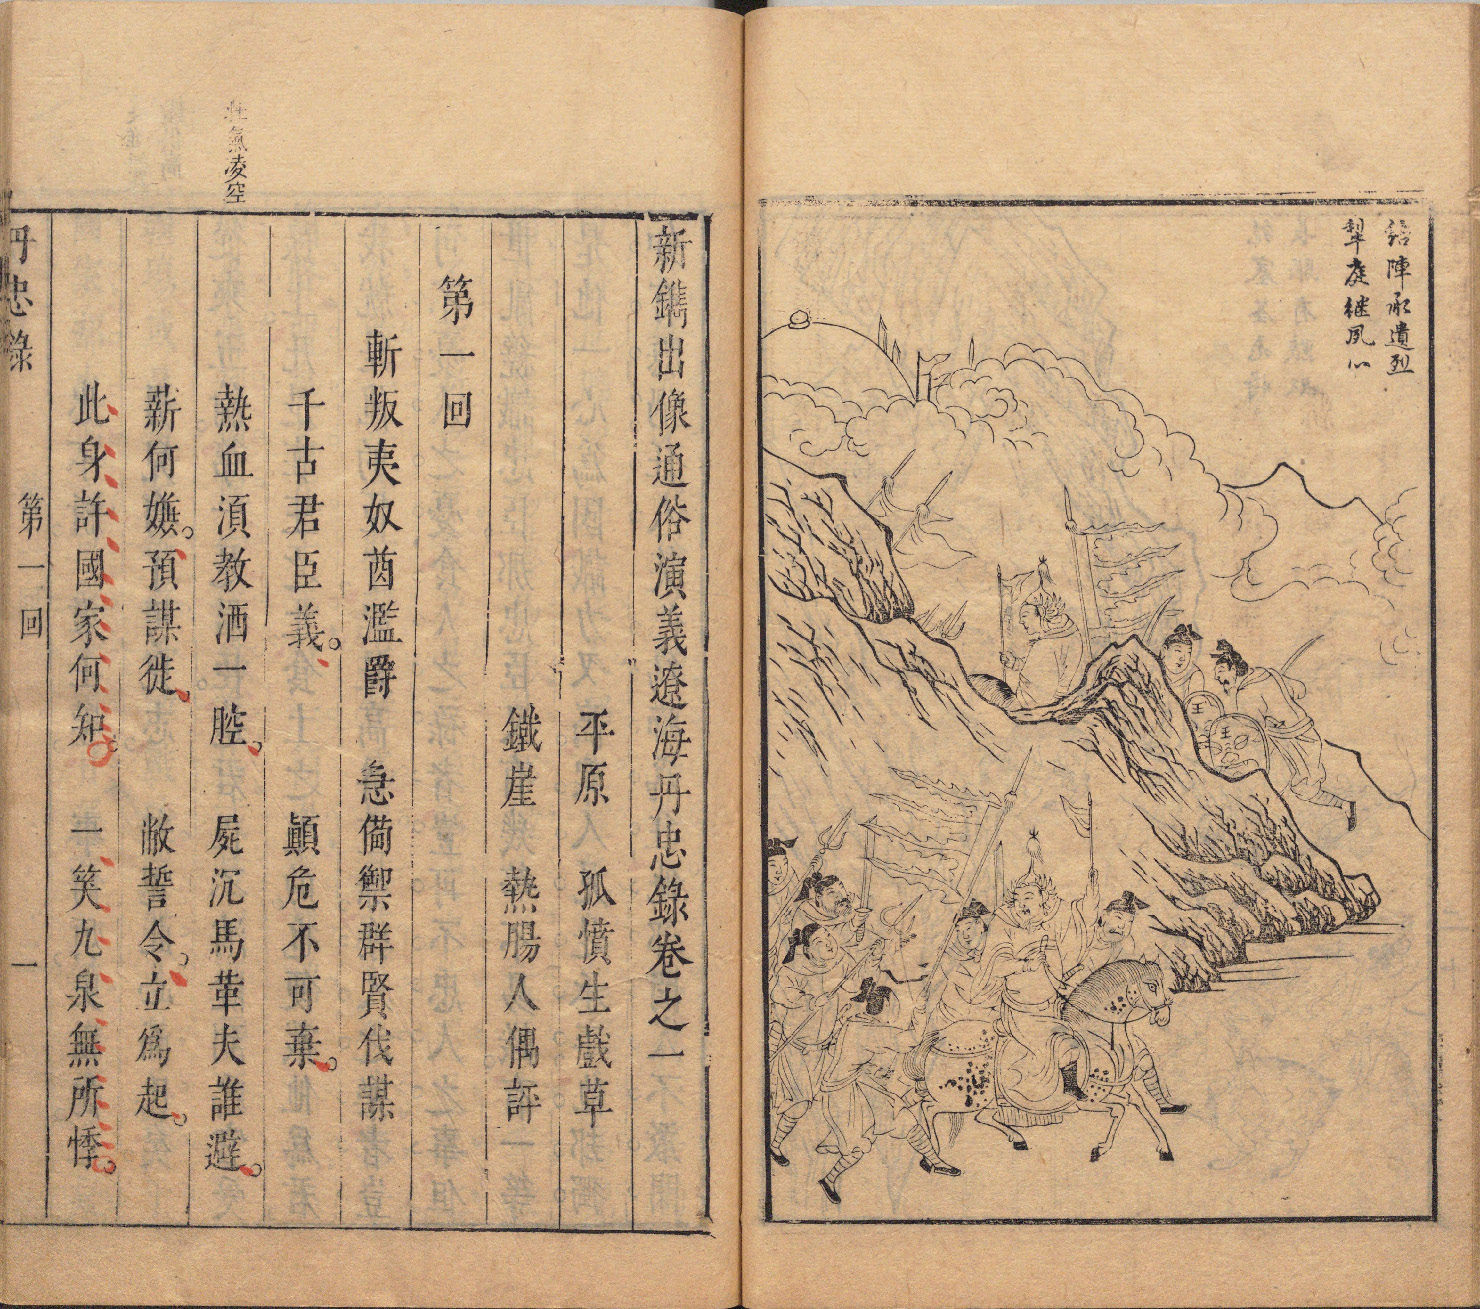 陣承遺烈
犂庭継夙心
新鐫出像通俗演義遼海丹忠錄卷之一
平原　孤憤生戲草
鐵崖　熱腸人偶評
第一回
斬叛夷奴酋濫爵　急備禦群賢伐謀
千古君臣義。顛危不可棄。
熱血湏教洒一腔。屍沉馬革夫誰避。
薪何嫌。預謀徙。敝誓令。立爲起。
此身許國家何知。一笑九泉無所悸。
壮氣凌空
丹忠錄
第一回
一
王
王